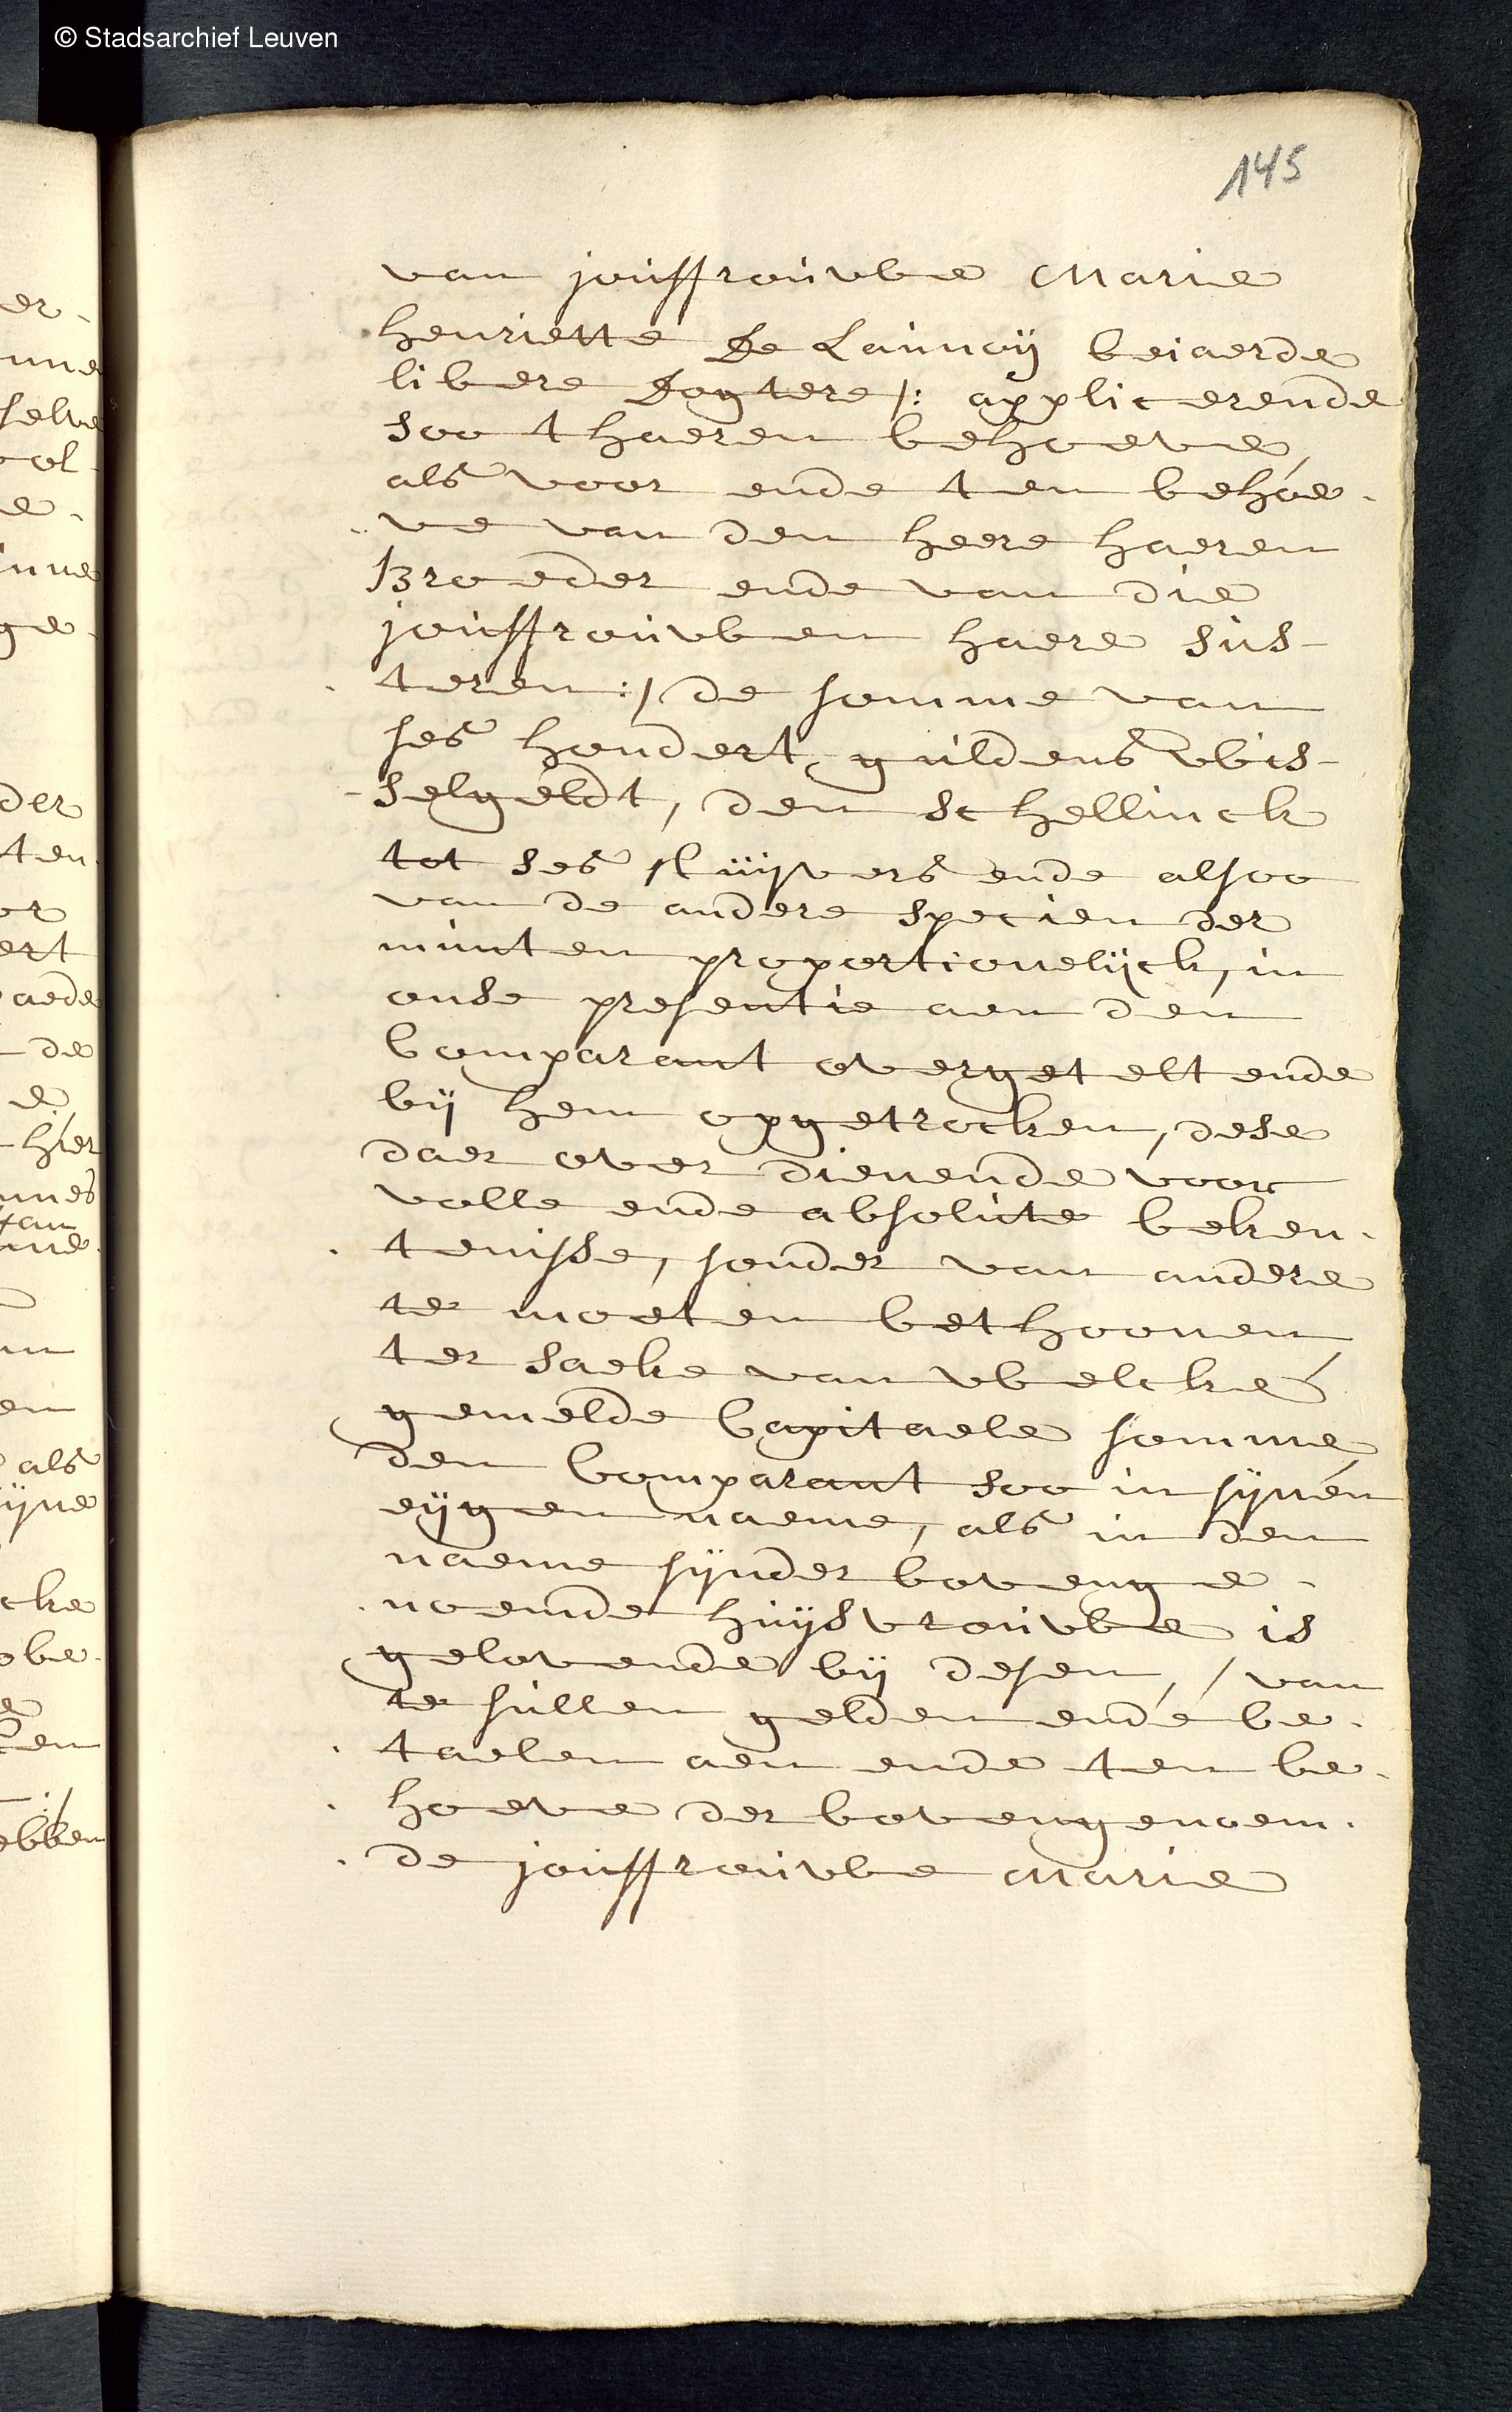 © Stadsarchief Leuven
145
van jouffrouwe Marie
henriette De Launoij beiaerde
libere Dogtere /: applicerende
soo t haeren behoeve
als voor ende ten behoe-
-ve van den heere haeren
Broeder ende van die
jouffrouwen haere sus-
teren :/ de somme van
ses hondert guldens wis-
-selgeldt, den schellinck
tot ses stuijvers ende alsoo
van de andere specien der
munten proportionelijck, in
onse presentie aen den
Comparant overgetelt ende
bij hem opgetrocken, dese
daer over dienende voor
volle ende absolute beken-
tenisse, sonder van andere
te moeten bethoonen
ter saeke van welcke
gemelde Capitaele somme
den Comparant soo in sijnen
eijgen naeme, als in den
naeme sijnder bovenge-
noemde huijsvrouwe is
gelovende bij desen, / van
te sullen gelden ende be-
taelen aen ende ten be-
hoeve der bovengenoem-
de jouffrouwe Marie